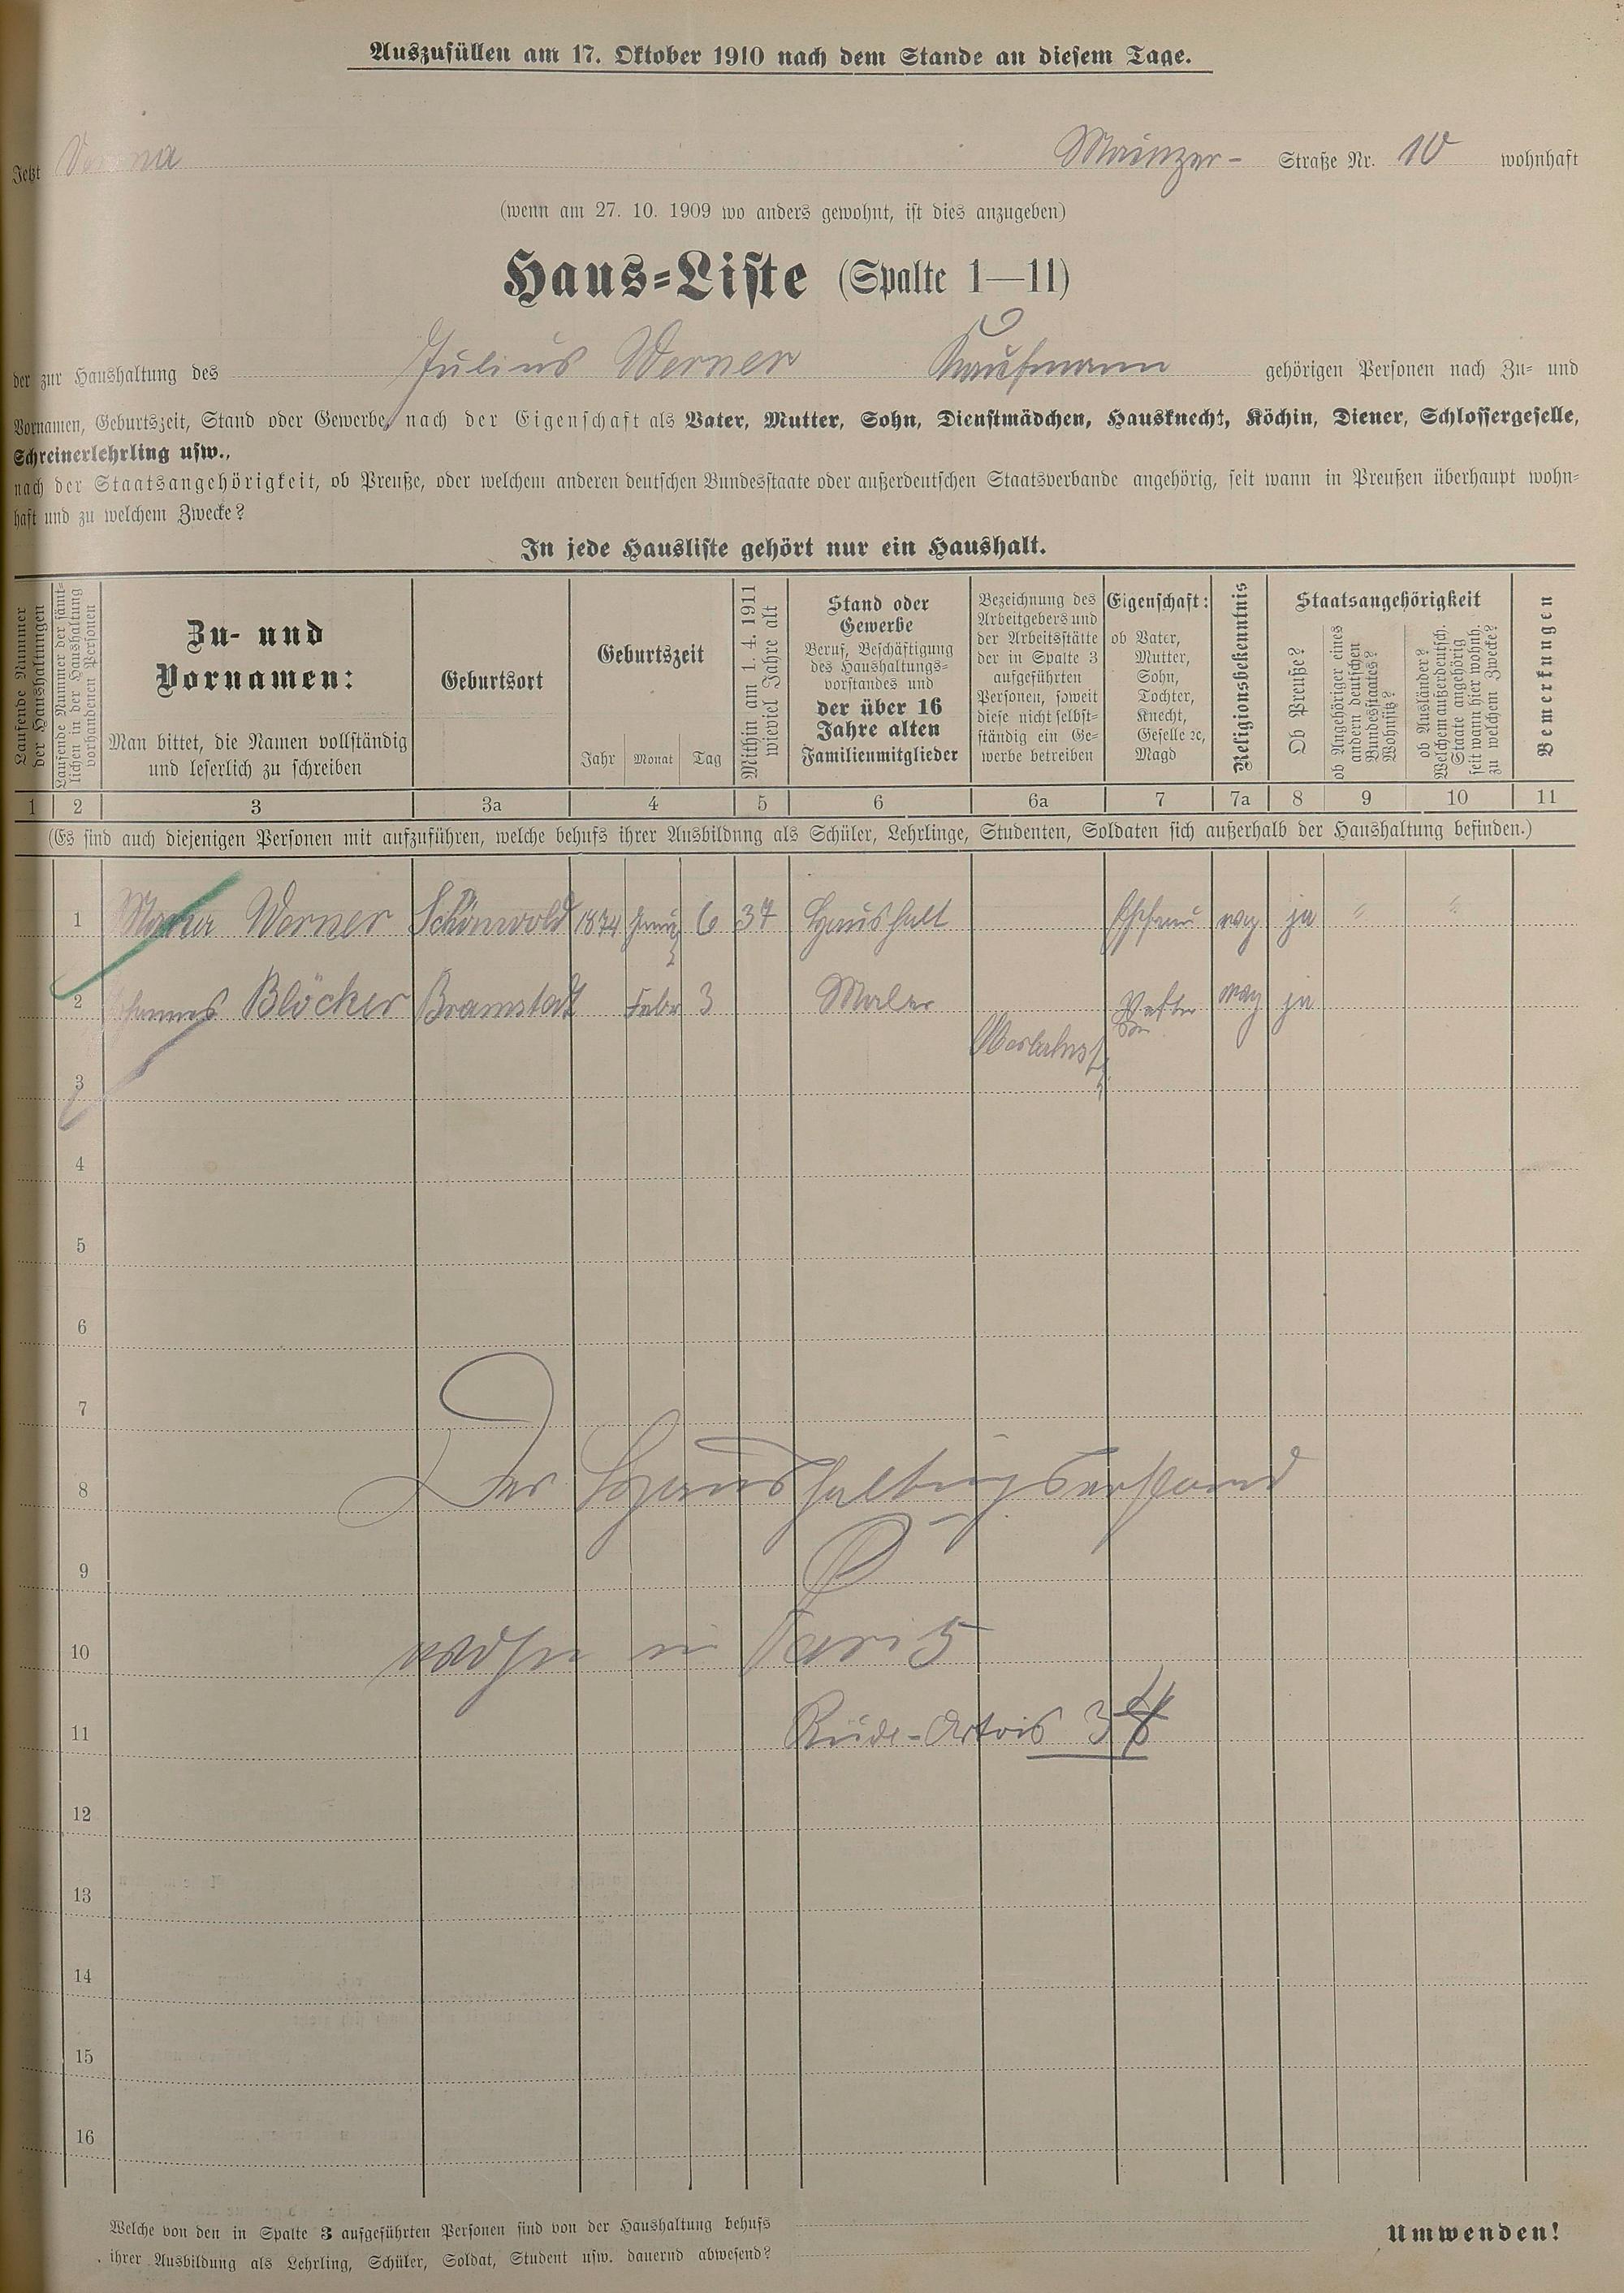 Auszufüllen am 17. Oktober 1910 nach dem Stande an diesem Tage.
Jetzt Mainzer- Straße Nr. 10 wohnhaft
(wenn am 27. 10. 1909 wo anders gewohnt, ist dies anzugeben)
Haus-Liste (Spalte 1—11)
der zur Haushaltung des Julius Werner Kaufmann gehörigen Personen nach Zu- und
Vornamen, Geburtszeit, Stand oder Gewerbe, nach der Eigenschaft als Vater, Mutter, Sohn, Dienstmädchen, Hausknecht, Köchin, Diener, Schlossergeselle,
Schreinerlehrling usw.,
nach der Staatsangehörigkeit, ob Preuße, oder welchem anderen deutschen Bundesstaate oder außerdeutschen Staatsverbande angehörig, seit wann in Preußen überhaupt wohn-
haft und zu welchem Zwecke?
In jede Hausliste gehört nur ein Haushalt.
Laufende Nummer
der Haushaltungen
Laufende Nummer der sämt-
lichen in der Haushaltung
vorhandenen Personen
Zu- und
Vornamen:
Man bittet, die Namen vollständig
und leserlich zu schreiben
Geburtsort
Geburtszeit
Jahr Monat Tag
Mithin am 1. 4. 1911
wieviel Jahre alt
Stand oder
Gewerbe
Beruf, Beschäftigung
des Haushaltungs-
vorstandes und
der über 16
Jahre alten
Familienmitglieder
Bezeichnung des
Arbeitgebers und
der Arbeitsstätte
der in Spalte 3
aufgeführten
Personen, soweit
diese nicht selbst-
ständig ein Ge-
werbe betreiben
Eigenschaft:
ob Vater,
Mutter,
Sohn,
Tochter,
Knecht,
Geselle ꝛc,
Magd
Religionsbekenntnis
Staatsangehörigkeit
Ob Preuße?
ob Angehöriger eines
andern deutschen
Bundesstaates?
Wohnsitz?
ob Ausländer?
Welchem außerdeutsch.
Staate angehörig
seit wann hier wohnh.
zu welchem Zwecke?
Bemerkungen
1 2 3 3a 4 5 6 6a 7 7a 8 9 10 11
(Es sind auch diejenigen Personen mit aufzuführen, welche behufs ihrer Ausbildung als Schüler, Lehrlinge, Studenten, Soldaten sich außerhalb der Haushaltung befinden.)
1 Maria Werner Schönwold 1874 6 37 Haushalt Ehefrau ja " "
2 Blöcker Bramstadt Febr 3 Maler ja
3
4
5
6
7
8 Der Haushaltungsvorstand
9
10 in Paris
11 Rüde-Artois
12
13
14
15
16
Welche von den in Spalte 3 aufgeführten Personen sind von der Haushaltung behufs
ihrer Ausbildung als Lehrling, Schüler, Soldat, Student usw. dauernd abwesend?
Umwenden!